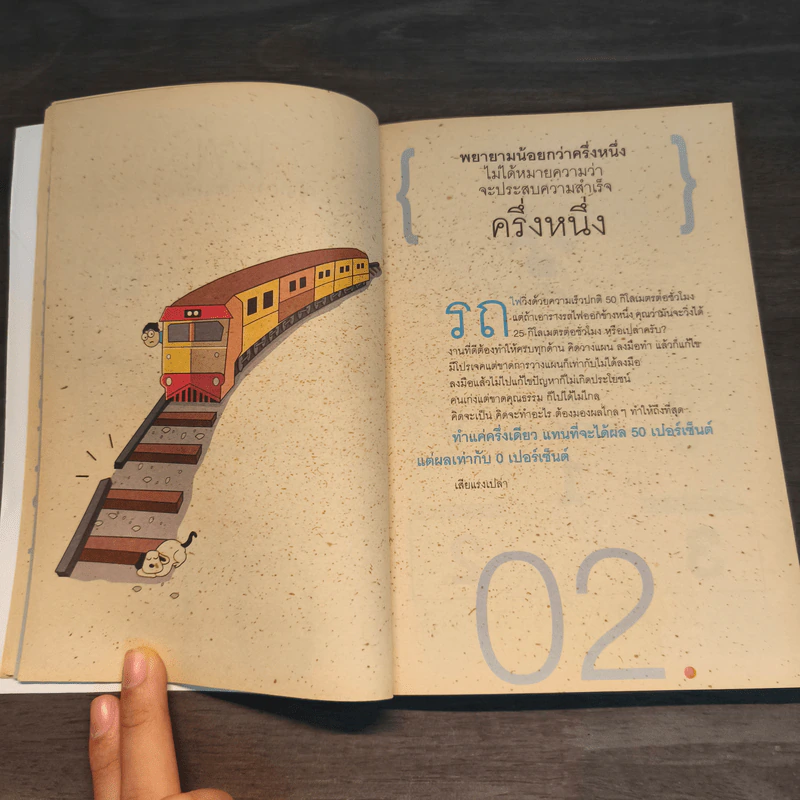 พยายามน้อยกว่าครึ่งหนึ่ง
ไม่ได้หมายความว่า
จะประสบความสำเร็จ
ครึ่งหนึ่ง
รถไฟวิ่งด้วยความเร็วปกติ 50 กิโลเมตรต่อชั่วโมง
แต่ถ้าเอารางรถไฟออกข้างหนึ่ง คุณว่ามันจะวิ่งได้
25 กิโลเมตรต่อชั่วโมง หรือเปล่าครับ?
งานที่ดีต้องทำให้ครบทุกด้าน คิดวางแผน ลงมือทำ แล้วก็แก้ไข
มีโปรเจคแต่ขาดการวางแผนก็เท่ากับไม่ได้ลงมือ
ลงมือแล้วไม่ไปแก้ไขปัญหาก็ไม่เกิดประโยชน์
คนเก่งแต่ขาดคุณธรรม ก็ไปได้ไม่ไกล
คิดจะเป็น คิดจะทำอะไร ต้องมองผลไกล ๆ ทำให้ถึงที่สุด
ทำแค่ครึ่งเดียว แทนที่จะได้ผล 50 เปอร์เซ็นต์
แต่ผลเท่ากับ 0 เปอร์เซ็นต์
เสียแรงเปล่า
02.